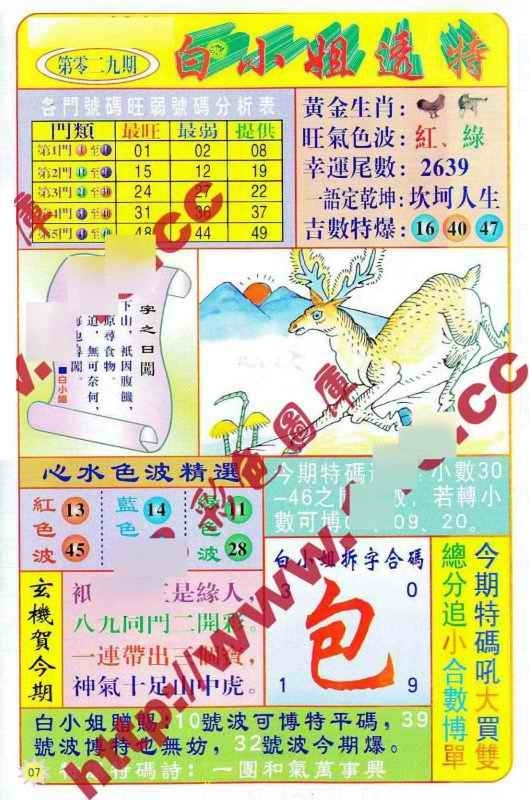 第零二九期
白小姐透特
各門號碼旺弱號碼分析表
門類 最旺 最弱 提供
第1門 至 01 02 08
第2門 至 15 12 19
第3門 至 24 27 22
第4門 至 31 36 37
第5門 至 48 44 49
黃金生肖:
旺氣色波:紅、綠
幸運尾數:2639
一語定乾坤:坎坷人生
吉數特爆:16 40 47
字之曰闖
下山,祇因腹饑,
原尋食物。
迫,無可奈何,
闖。
■白小姐
心水色波精選
紅色波 13 45
藍色 14
色波 11 28
今期特碼 小數30
-46之 ,若轉小
數可博 、09、20。
玄機賀今期
祇 是緣人,
八九同門二開彩。
一連帶出三個寶,
神氣十足山中虎。
白小姐拆字合碼
3 0
包
1 9
今期特碼吼大買雙
總分追小合數博單
白小姐贈賜:10號波可博特平碼,39
號波博特也無妨,32號波今期爆。
特碼詩:一團和氣萬事興
07
彩色圖庫
http://www. .cc